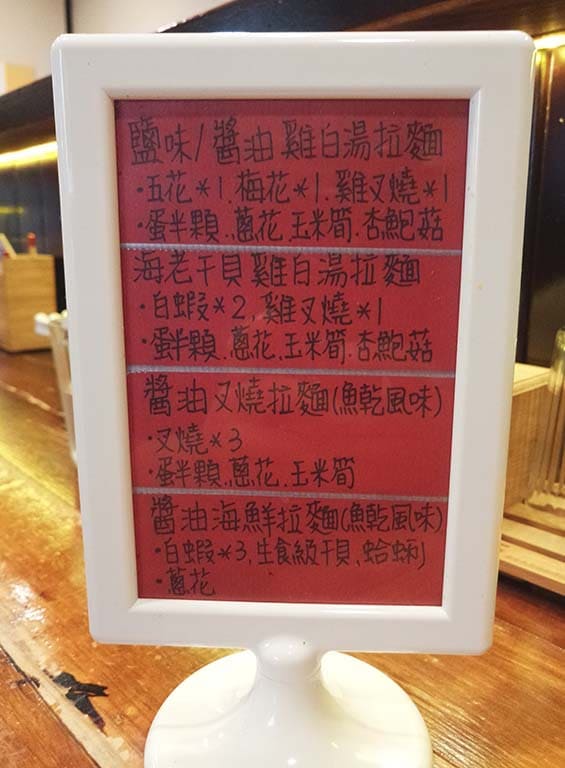 鹽味/醬油雞白湯拉麵
·五花*1.梅花*1.雞叉燒*1
·蛋半顆.蔥花.玉米筍.杏鮑菇
海老干貝雞白湯拉麵
·白蝦*2,雞叉燒*1
·蛋半顆.蔥花.玉米筍.杏鮑菇
醬油叉燒拉麵(魚乾風味)
·叉燒*3
·蛋半顆.蔥花.玉米筍
醬油海鮮拉麵(魚乾風味)
·白蝦*3,生食級干貝、蛤蜊
·蔥花